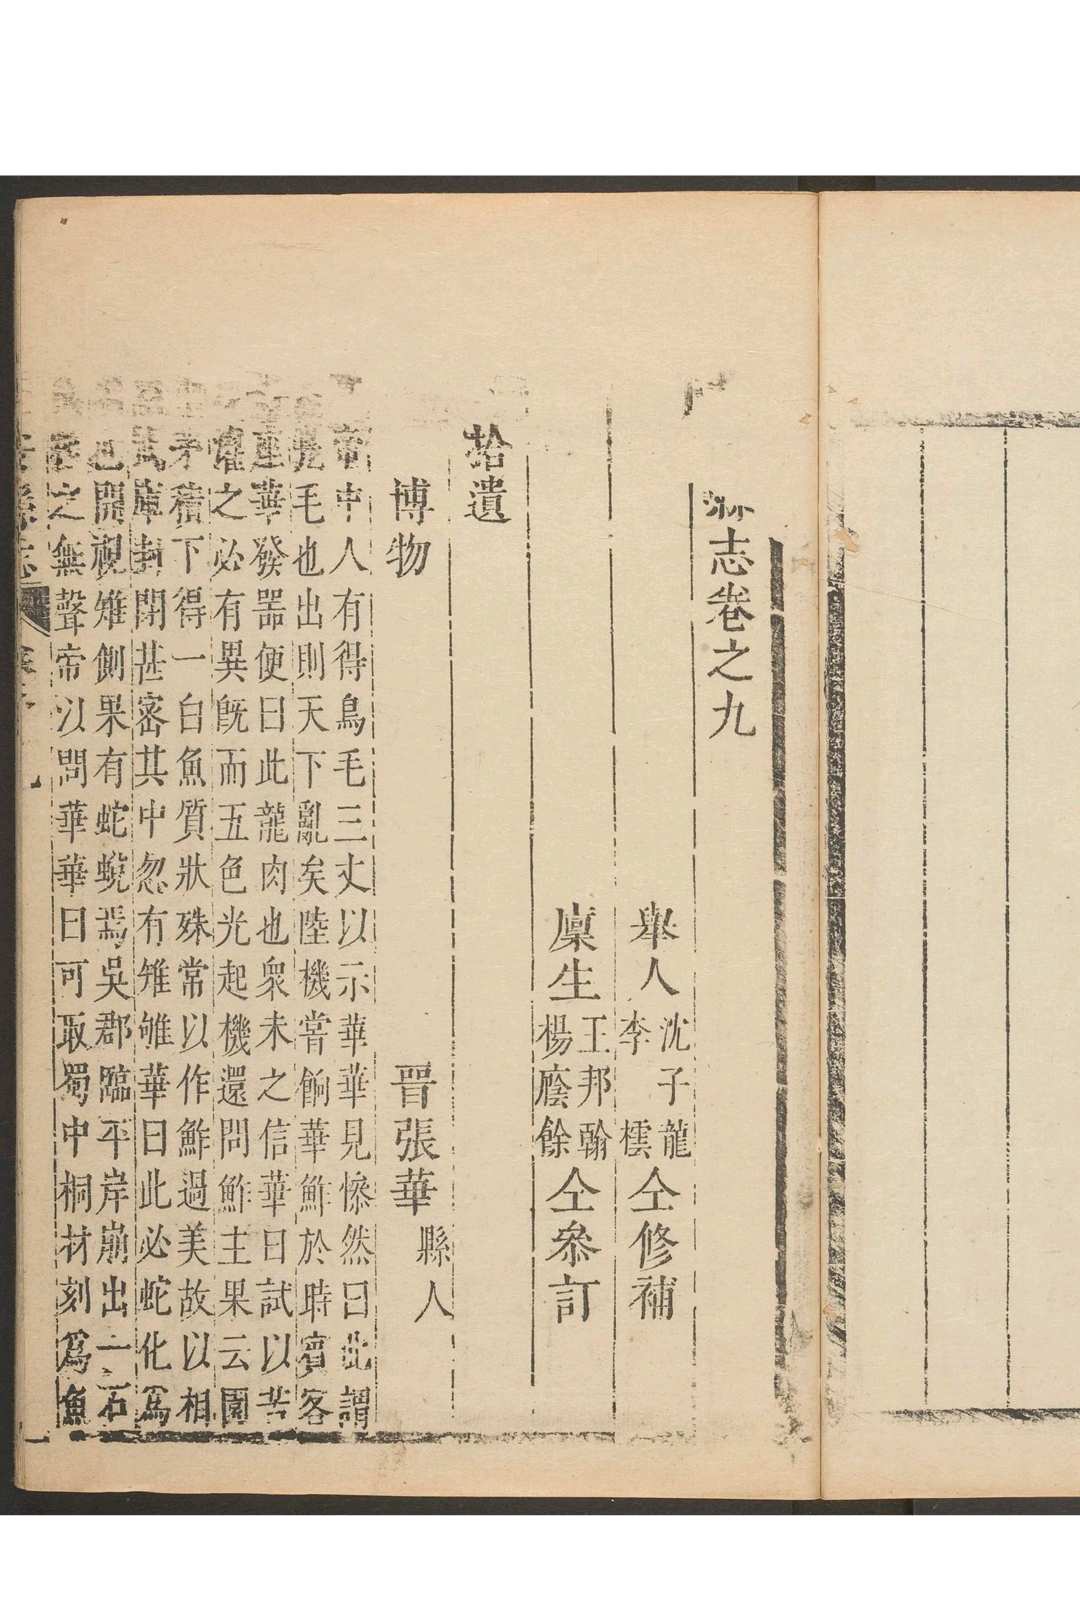 志卷之九
舉人沈子龍李櫺仝修補
廩生王邦翰楊廕餘仝叅訂
拾遺
博物 晉張華縣人
帝中人有得鳥毛三丈以示華華見慘然曰此謂
毛也出則天下亂矣陸機嘗餉華鮓於時賓客
座華發器便曰此龍肉也衆未之信華曰試以苦
濯之必有異旣而五色光起機還問鮓主果云園
茅積下得一白魚質狀殊常以作鮓過美故以相
武庫封閉甚密其中忽有雉雊華曰此必蛇化爲
也開視雉側果有蛇蛻焉吳郡臨平岸崩出一石
之無聲帝以問華華曰可取蜀中桐材刻爲魚